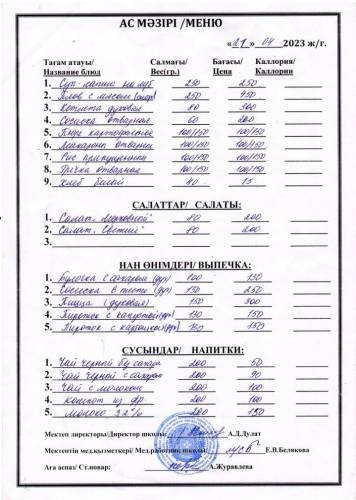 АС МӘЗІРІ /МЕНЮ
«21 » 04 2023 ж/г.
Тағам атауы/ Салмағы/ Бағасы/ Каллория/
Название блюд Вес(гр.) Цена Каллории
1. Суп-лапша на м/б 250 250
2. Плов с мясом 250 450
3. Котлета духовая 80 300
4. Сосиска отварная 60 200
5. Пюре картофельное 100/150 100/150
6. Макароны отварные 100/150 100/150
7. Рис припущенный 100/150 100/150
8. Гречка отварная 100/150 100/150
9. Хлеб белый 40 15
САЛАТТАР/ САЛАТЫ:
1. Салат. 80 200
2. Салат. "Свежий" 80 200
3.
НАН ӨНІМДЕРІ/ ВЫПЕЧКА:
1. Булочка с сахаром (дух) 100 130
2. Сосиска в тесте (дух) 130 250
3. Пицца (духовая) 150 300
4. Пирожок с капустой(дух) 130 150
5. Пирожок с картошкой(дух) 130 150
СУСЫНДАР/ НАПИТКИ:
1. Чай черный б/сахара 200 50
2. Чай черный с сахаром 200 90
3. Чай с молоком 200 100
4. компот из фр. 200 100
5. молоко 3,2% 200 150
Мектеп директоры/Директор школы: А.Д.Дулат
Мектептің мед.қызметкері/ Мед.работник школы: Е.В.Белякова
Аға аспаз/ Ст.повар: А.Журавлева